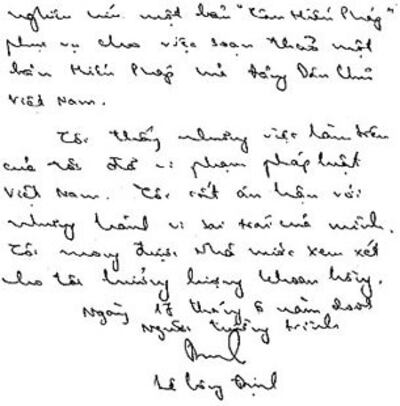 nghiên cứu một bản "Tân Hiến Pháp"
phục vụ cho việc soạn thảo một
bản Hiến Pháp mà Đảng Dân Chủ
Việt Nam.
Tôi thấy những việc làm trên
của tôi đã vi phạm pháp luật
Việt Nam. Tôi rất ân hận với
những hành vi sai trái của mình.
Tôi mong được Nhà nước xem xét
cho tôi hưởng lượng khoan hồng.
Ngày 17 tháng 6 năm 2009
Người tường trình
Lê Công Định